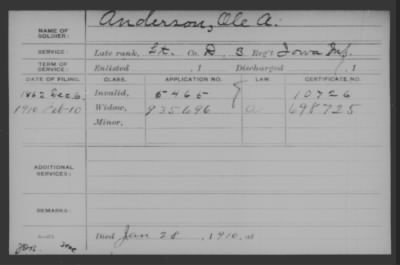 NAME OF SOLDIER: Anderson, Ole A.
SERVICE: Late rank, Lt. Co. D, 3 Reg't Iowa Inf.
TERM OF SERVICE: Enlisted , 1 Discharged , 1
DATE OF FILING. CLASS. APPLICATION NO. LAW. CERTIFICATE NO.
1862 Dec. 6. Invalid, 5465 10726
1910 Feb-10 Widow, 935696 a 698725
Minor,
ADDITIONAL SERVICES:
REMARKS:
Died Jan 28, 1910, at